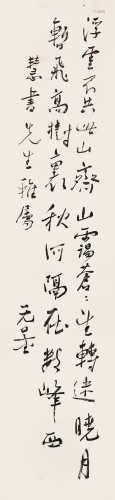 浮雲不共此山齋山靄蒼蒼望轉迷曉月
暫飛高樹裏秋河隔在數峰西
慧書先生雅屬
无量